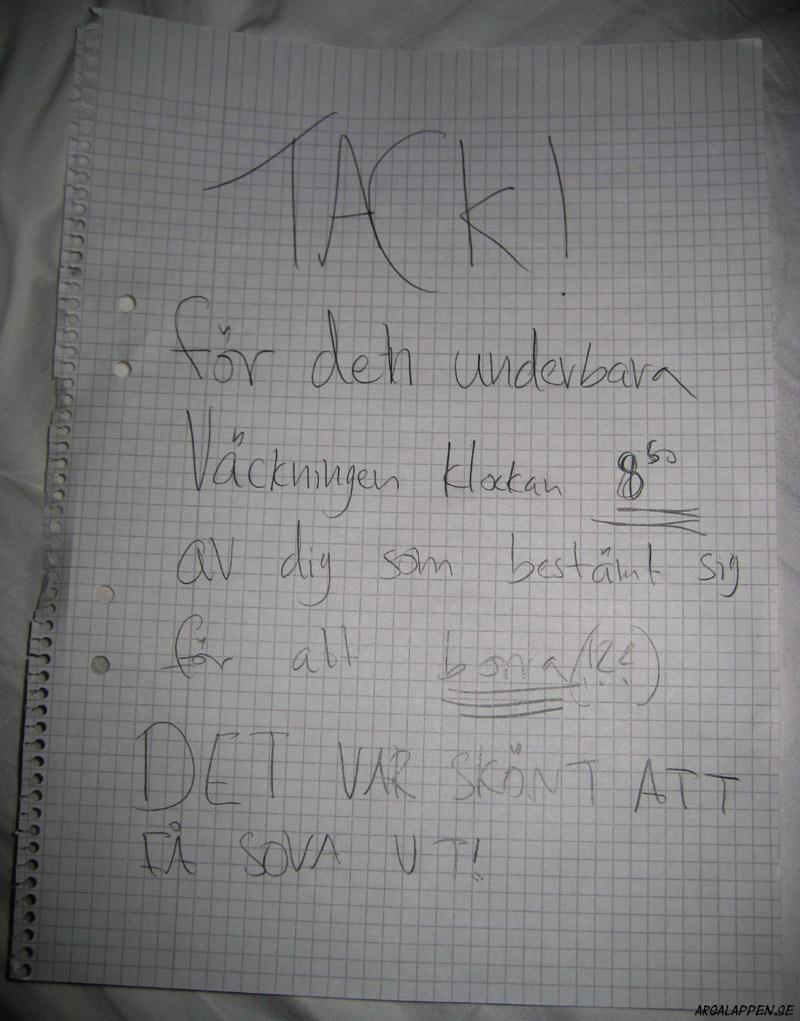 TACK!
för den underbara
Väckningen klockan 8⁵⁰
av dig som bestämt sig
för att borra (!?!?)
DET VAR SKÖNT ATT
FÅ SOVA UT!
ARGALAPPEN.SE